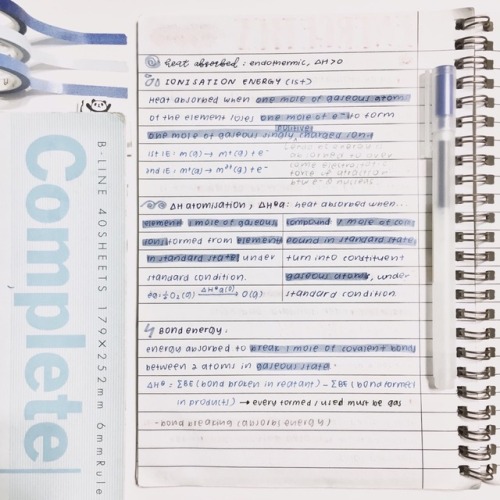 heat absorbed: endothermic, ΔH>0
IONISATION ENERGY (1st)
Heat absorbed when one mole of gaseous atoms
of the element loses one mole of e⁻ to form
one mole of gaseous singly positive charged ion
1st IE: M(g) → M⁺(g) + e⁻
2nd IE: M⁺(g) → M²⁺(g) + e⁻
ΔH atomisation, ΔHat: heat absorbed when...
element 1 mole of gaseous
formed from element
in standard state under
standard condition.
eg: ½O₂(g) → O(g)
compound 1 mole of
in standard state
turn into constituent
gaseous atoms, under
standard condition
Bond energy:
energy absorbed to break 1 mole of covalent bond
between 2 atoms in gaseous state.
ΔH = ΣBE (bond broken in reactant) − ΣBE (bond formed
in product) → every formed / used must be gas
- bond breaking (absorb energy)
Complete
B-LINE 40SHEETS 179X252mm 6mmRule